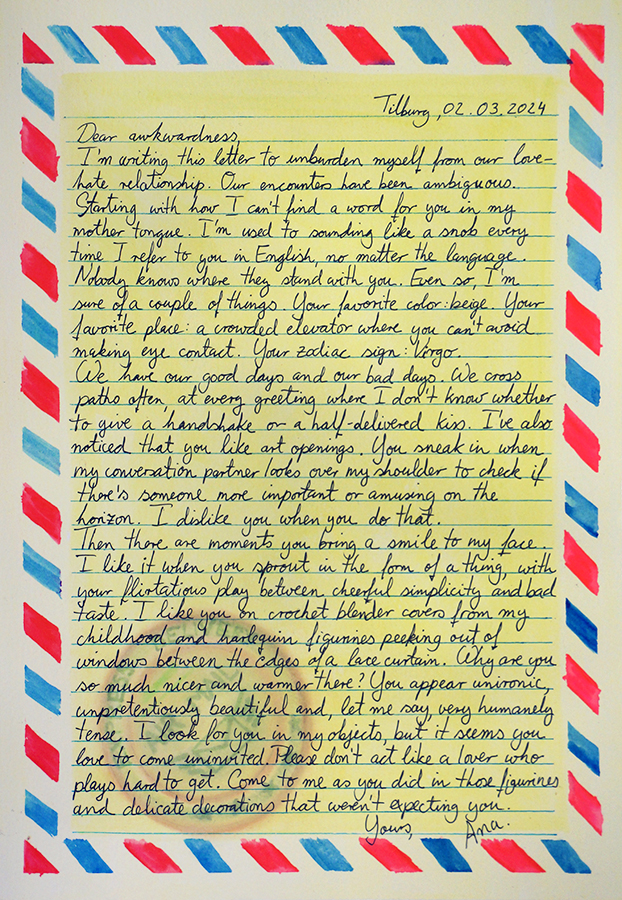 Tilburg, 02.03.2024
Dear awkwardness,
I'm writing this letter to unburden myself from our love-
hate relationship. Our encounters have been ambiguous.
Starting with how I can't find a word for you in my
mother tongue. I'm used to sounding like a snob every
time I refer to you in English, no matter the language.
Nobody knows where they stand with you. Even so, I'm
sure of a couple of things. Your favorite color: beige. Your
favorite place: a crowded elevator where you can't avoid
making eye contact. Your zodiac sign: Virgo.
We have our good days and our bad days. We cross
paths often, at every greeting where I don't know whether
to give a handshake or a half-delivered kiss. I've also
noticed that you like art openings. You sneak in when
my conversation partner looks over my shoulder to check if
there's someone more important or amusing on the
horizon. I dislike you when you do that.
Then there are moments you bring a smile to my face.
I like it when you sprout in the form of a thing, with
your flirtatious play between cheerful simplicity and bad
taste. I like you in crochet blender covers from my
childhood and harlequin figurines peeking out of
windows between the edges of a lace curtain. Why are you
so much nicer and warmer there? You appear unironic,
unpretentiously beautiful and, let me say, very humanely
tense. I look for you in my objects, but it seems you
love to come uninvited. Please don't act like a lover who
plays hard to get. Come to me as you did in those figurines
and delicate decorations that weren't expecting you.
Yours, Ana.